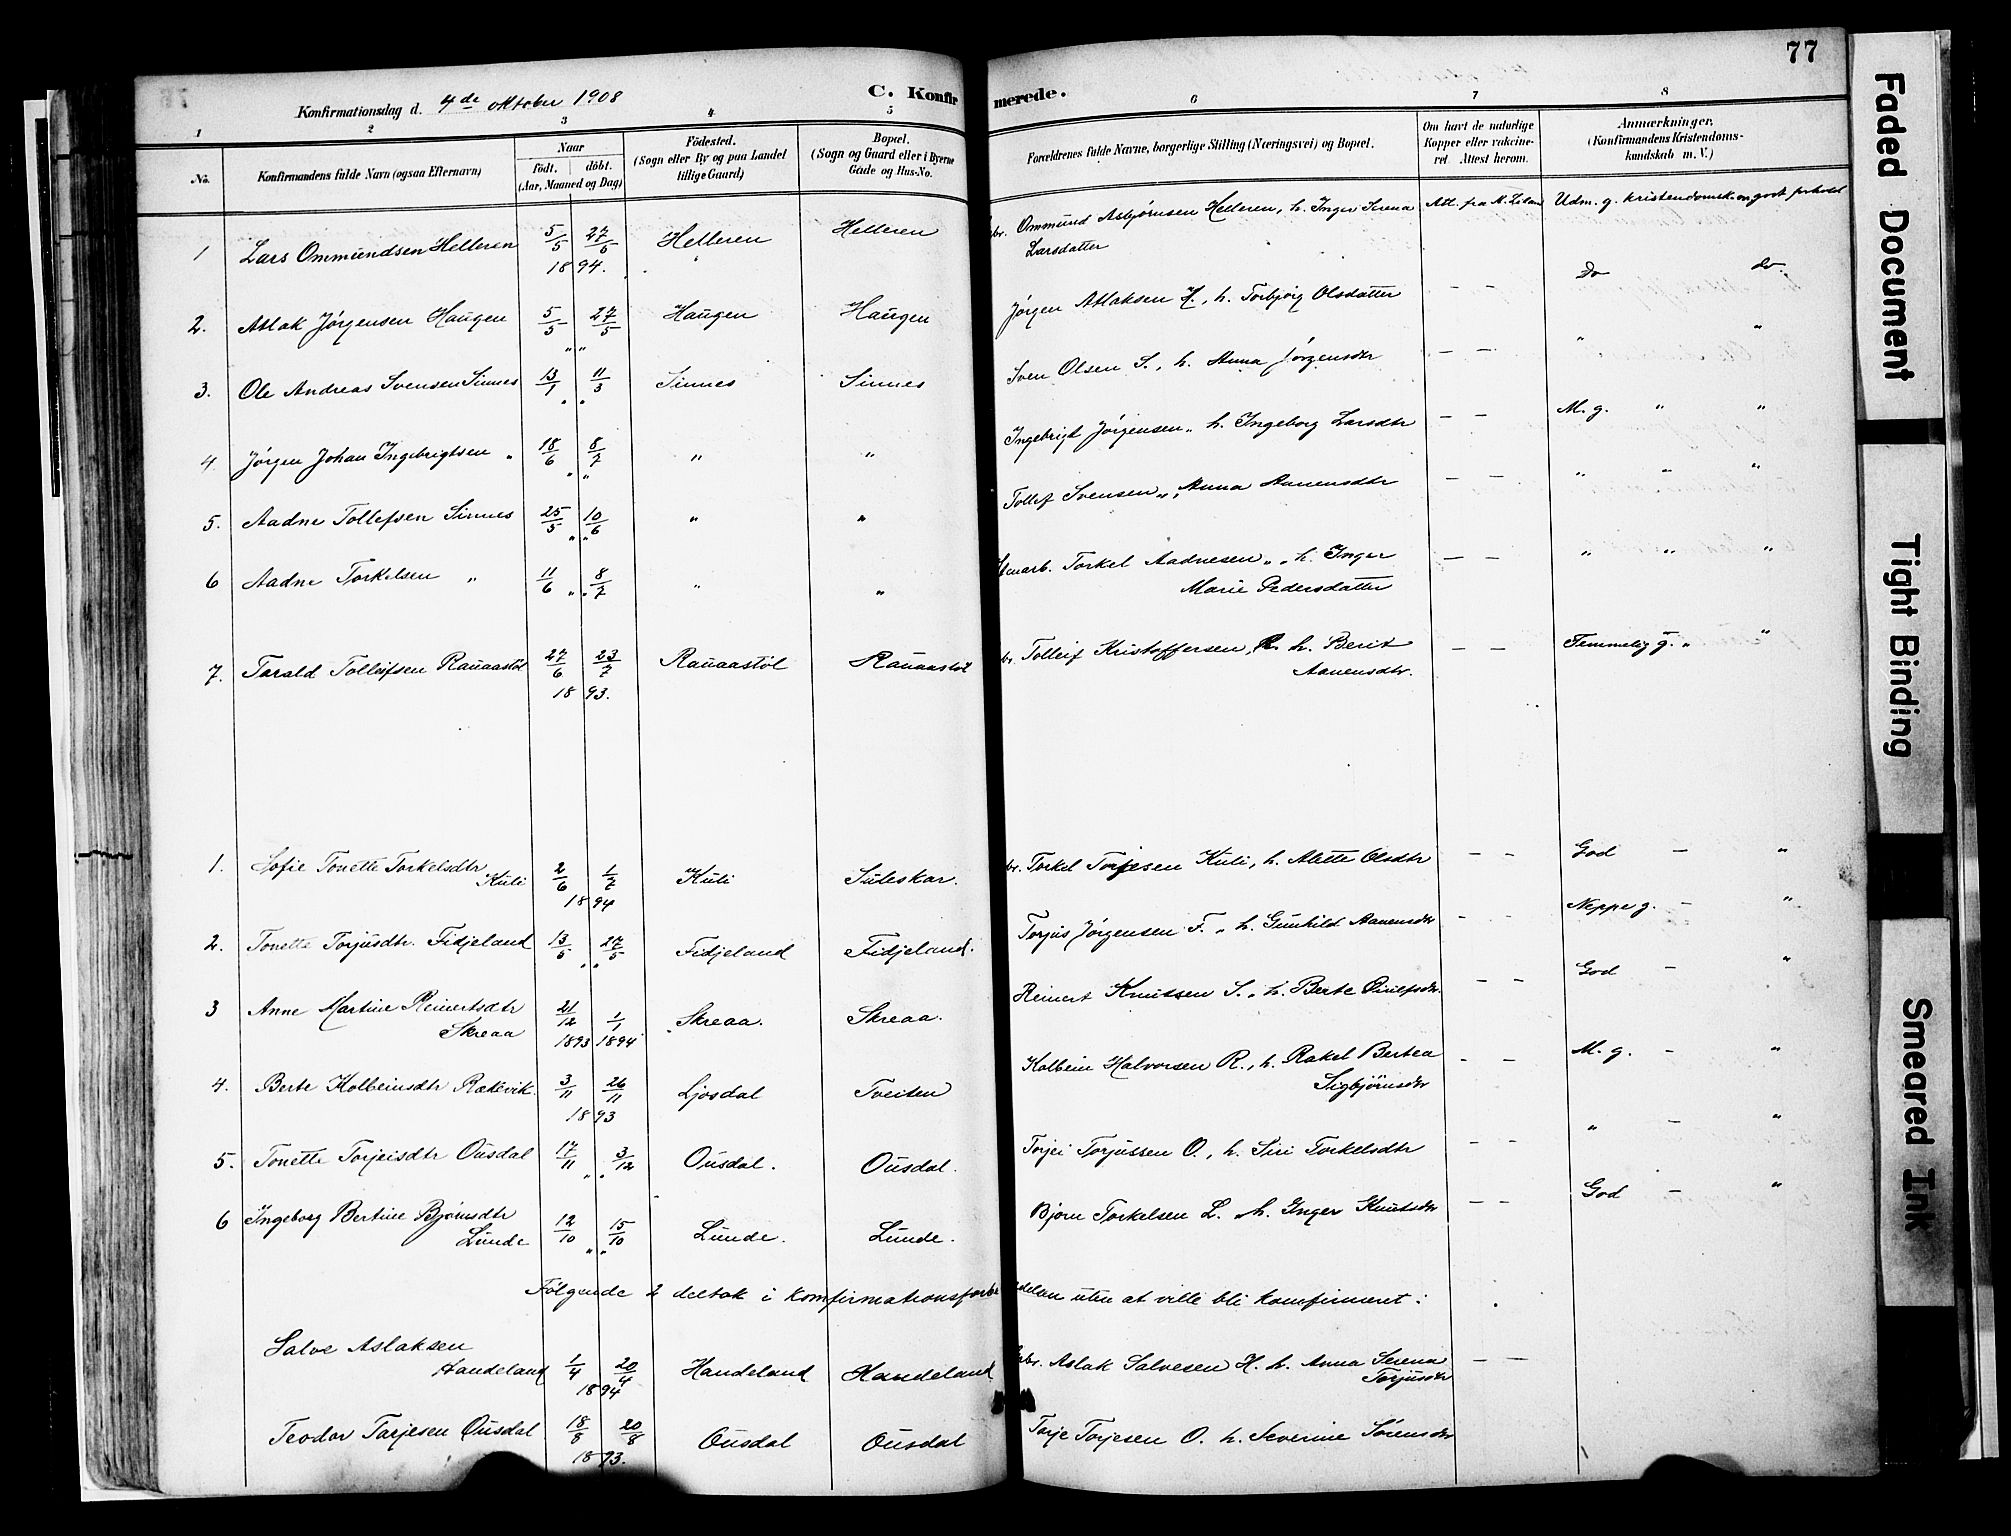 77
Konfirmationsdag d. 4de oktober 1908
C. Konfir merede.
1 2 3 4 5 6 7 8
No.
Konfirmandens fulde Navn (ogsaa Efternavn)
Naar
født. døbt.
(Aar, Maaned og Dag)
Fødested.
(Sogn eller By og paa Landet
tillige Gaard)
Bopæl.
(Sogn og Gaard eller i Byerne
Gade og Hus-No.
Forældrenes fulde Navne, borgerlige Stilling (Næringsvei) og Bopæl.
Om havt de naturlige
Kopper eller vakcine-
ret. Attest herom.
Anmærkninger,
(Konfirmandens Kristendoms-
kundskab m. V.)
1 Lars Ommundsen Helleren 5/5 27/5 Helleren Helleren Ommund Asbjørnsen Helleren, h. Inger Serena Att. fra Udm. g. kristendomsk. og godt forhold
1894. Larsdatter
2. Aslak Jørgensen Haugen 5/5 27/5 Haugen Haugen Jørgen Atlaksen H., h. Torbjørg Olsdatter — — Do do.
" "
3. Ole Andreas Svensen Sinnes 13/1 11/3 Sinnes Sinnes Sven Olsen S., h. Anna Jørgensdtr — — " "
" "
4. Jørgen Johan Ingebrigtsen " 18/6 8/7 " " Ingebrigt Jørgensen " h. Ingeborg Larsdtr — — M. g. " "
" "
5. Aadne Tollefsen Sinnes 25/5 10/6 " " Tollef Svensen ", Anna Aanensdtr — — " " "
" "
6 Aadne Torkelsen " 11/6 8/7 " " Torkel Aadnesen " " h. Inger — — " " "
" " Marie Pedersdatter
7. Tarald Tolleifsen Rauaastøl 27/6 23/7 Rauaastöl Rauaastöl Tolleif Kristoffersen, R. h. Berit — — Temmelig g. " "
1893. Aanensdtr.
1. Sofie Tonette Torkelsdtr
Kuli 2/6 1/7 Kuli Suleskar. Torkel Torjesen Kuli, h. Alette Olsdtr — — God — "
1894
2. Tonette Torjusdtr. Fidjeland 13/5 27/5 Fidjeland Fidjeland. Torjus Jørgensen F. " h. Gunhild Aanensdtr — — Neppe g. — "
" "
3 Anne Martine Reinertsdtr
Skreaa 21/12 1/1 Skreaa. Skreaa. Reinert Knutsen S. " h. Berte — — God — "
1893 1894
4. Berte Kolbeinsdtr Rækevik. 3/11 26/11 Ljosdal Tveiten Kolbein Halvorsen R., h. Rakel Bertea — — M. g. — "
1893 Sigbjørnsdtr
5. Tonette Torjeisdtr Ousdal 17/11 3/12 Ousdal. Ousdal. Torjei Torjussen O., h. Siri Torkelsdtr — — " — "
" "
6 Ingeborg Bertine Bjørnsdtr
Lunde 12/10 15/10 Lunde. Lunde. Bjørn Torkelsen L. " h. Inger Knutsdtr — — God — "
" "
Følgende 2 deltok i konfirmationsforbe delsen uten at ville bli konfirmeret:
Salve Aslaksen
Handeland 1/4 20/4 Handeland Handeland Aslak Salvesen H. h. Anna Serena — —
1894 Torjusdtr
Teodor Tarjesen Ousdal 18/8 20/8 Ousdal Ousdal Torje Torjesen O. h. Severine Sørensdtr
1893.
Faded Document
Tight Binding
Smeared Ink